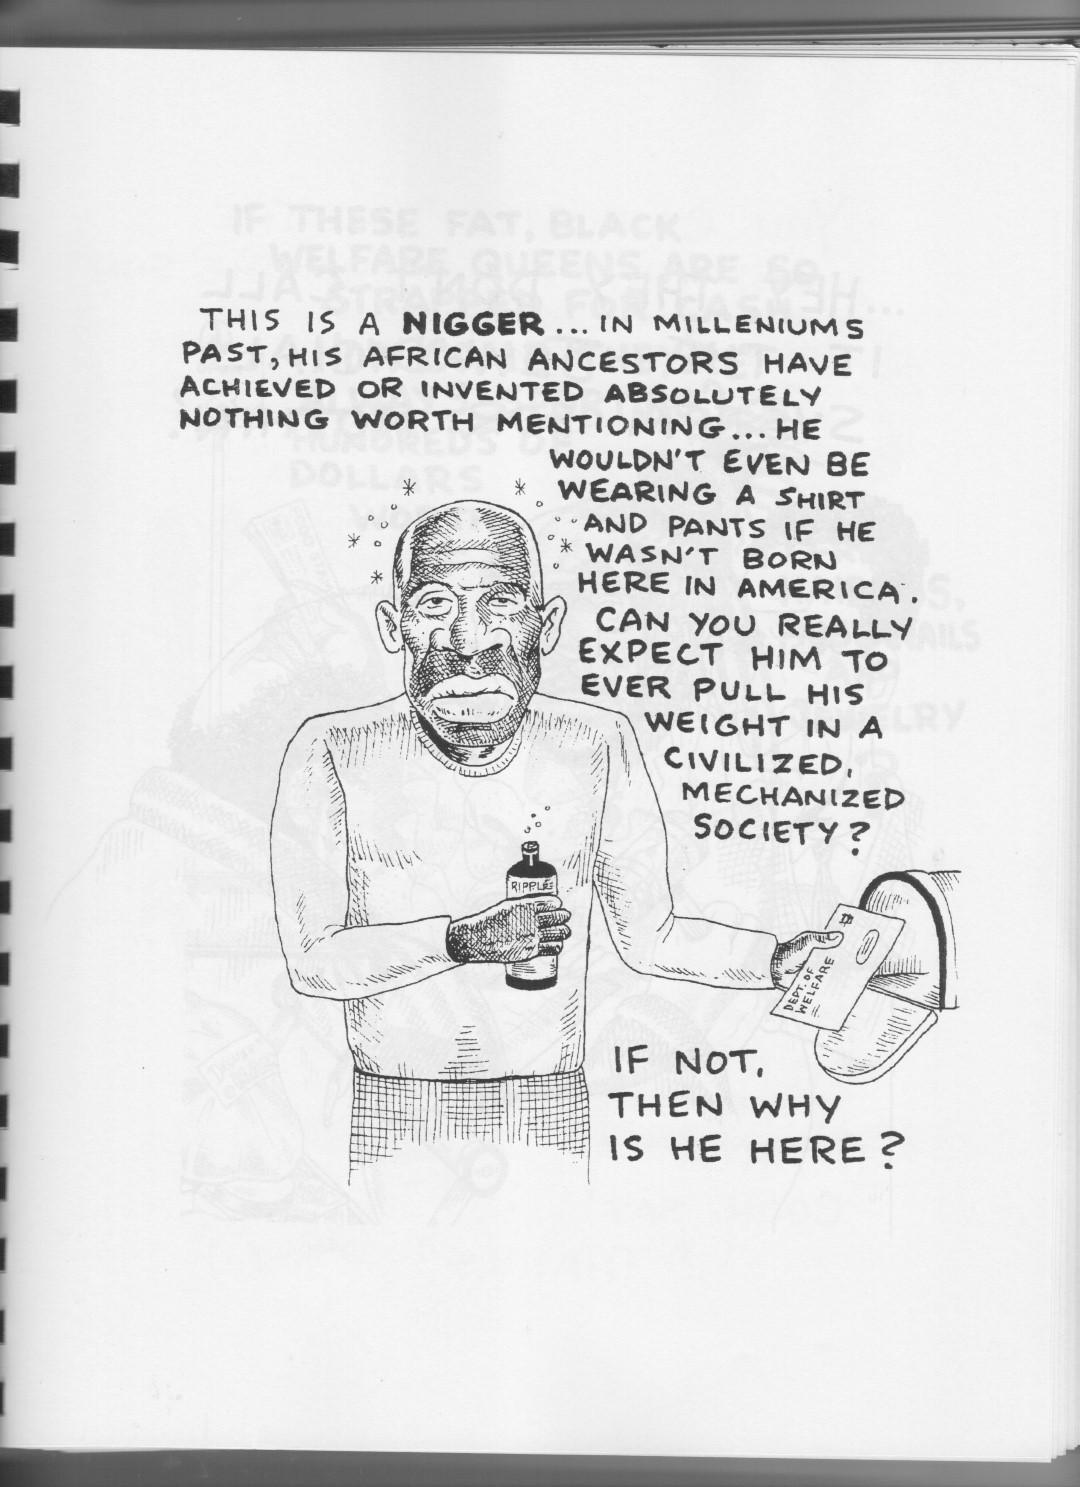 IF THESE FAT, BLACK
WELFARE QUEENS ARE SO
STRAPPED FOR CASH
THIS IS A NIGGER... IN MILLENIUMS
PAST, HIS AFRICAN ANCESTORS HAVE
ACHIEVED OR INVENTED ABSOLUTELY
NOTHING WORTH MENTIONING... HE
WOULDN'T EVEN BE
WEARING A SHIRT
AND PANTS IF HE
WASN'T BORN
HERE IN AMERICA.
CAN YOU REALLY
EXPECT HIM TO
EVER PULL HIS
WEIGHT IN A
CIVILIZED,
MECHANIZED
SOCIETY?
HUNDREDS OF
DOLLARS
RIPPLE
DEPT. OF
WELFARE
IF NOT,
THEN WHY
IS HE HERE?